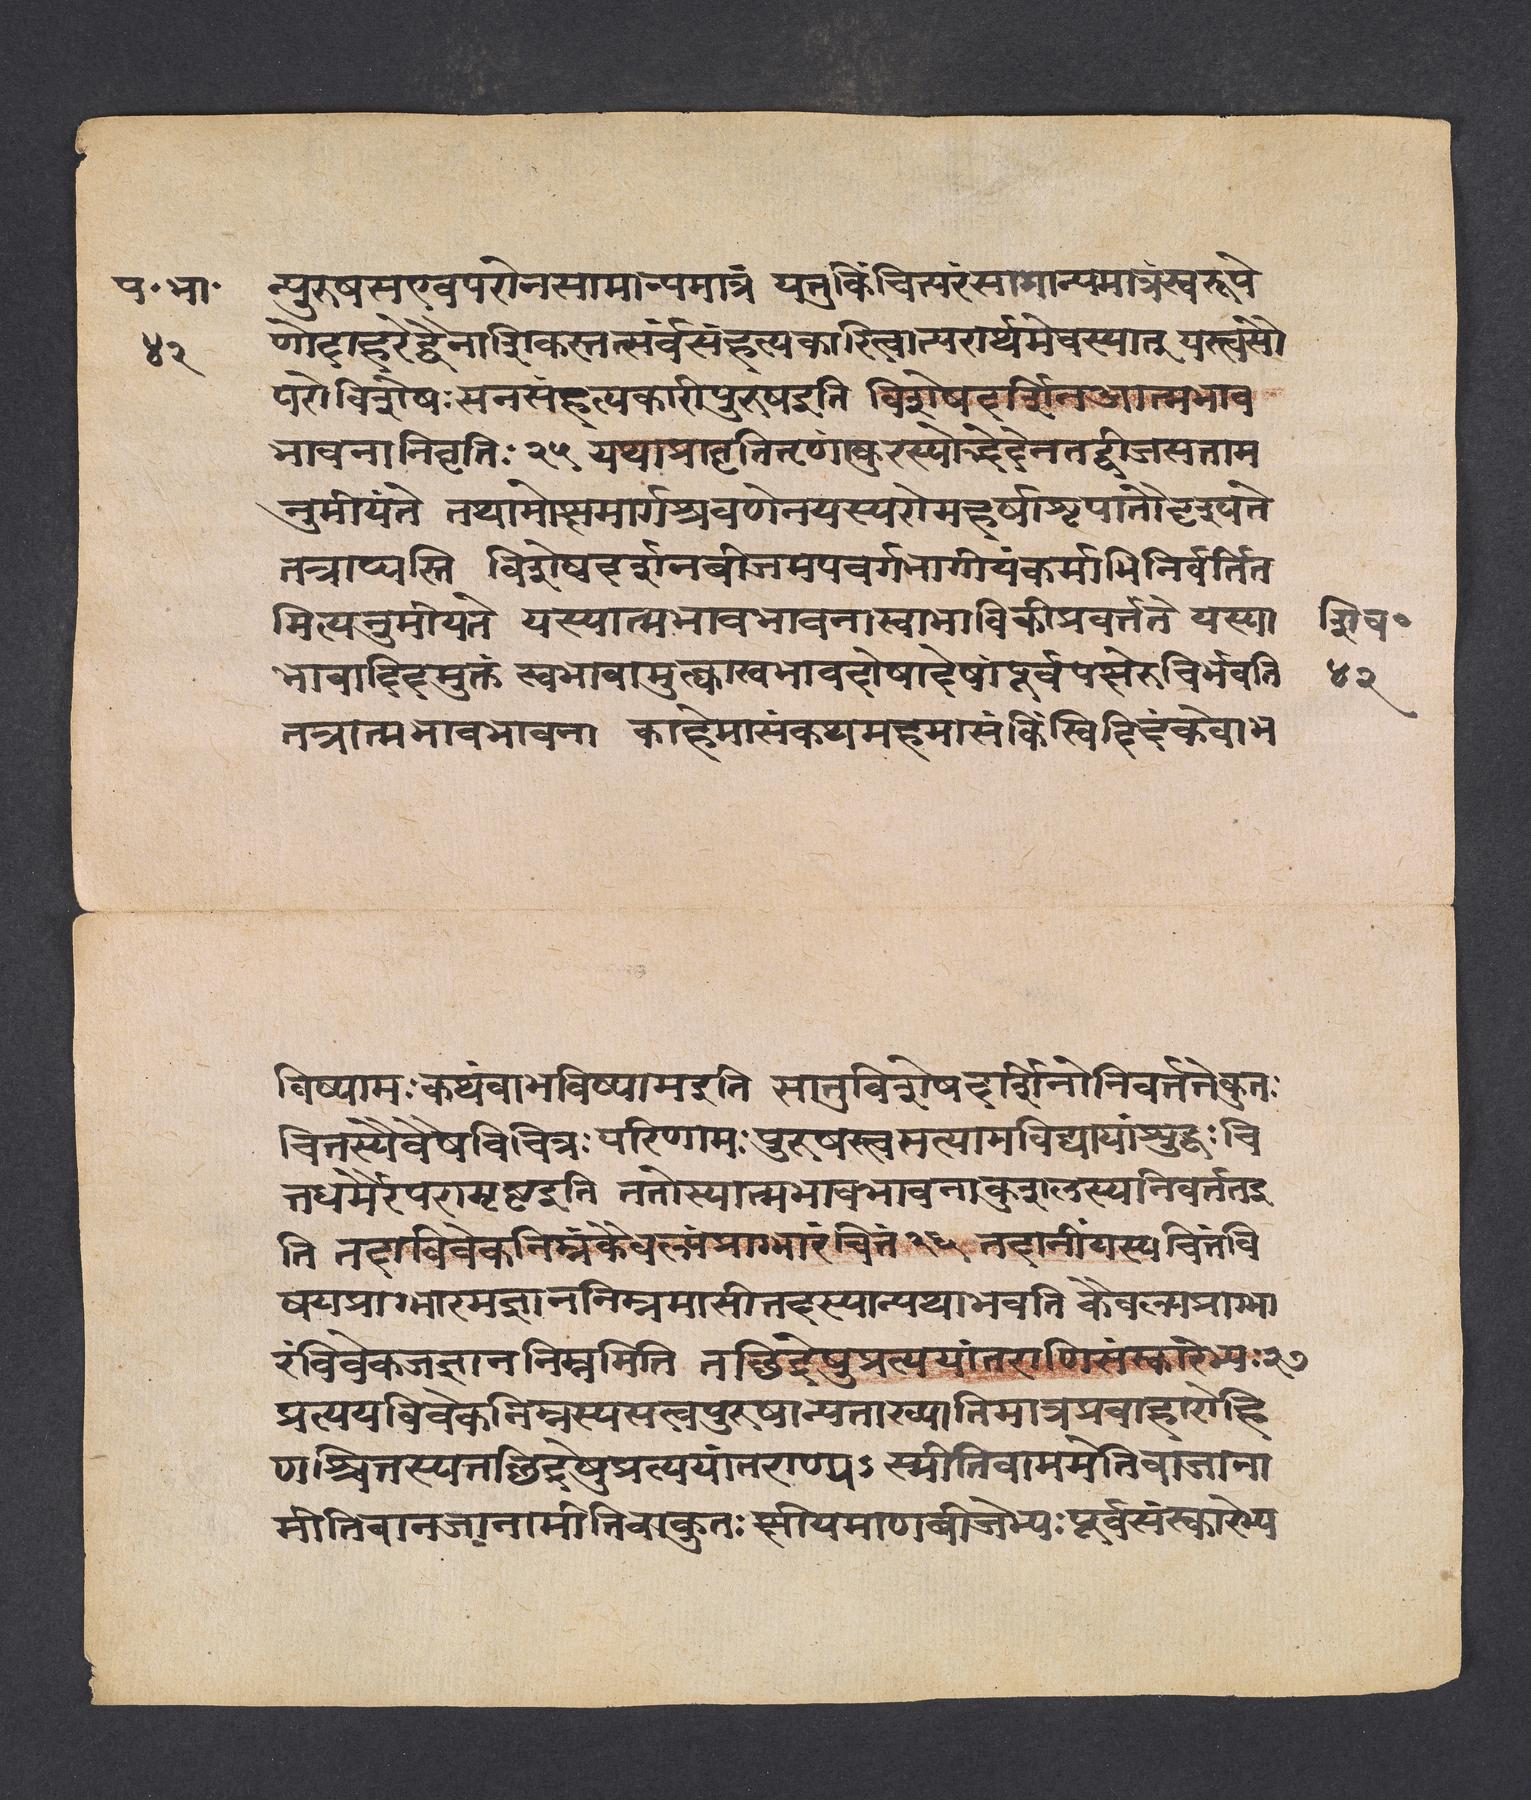 प॰ भा॰
४२
न्पुरुषसएवपरोनसामान्यमात्रं यत्तुकिंचित्परंसामान्यमात्रंस्वरूपे
णोदाहरेद्वैनाशिकस्तत्सर्वसंहत्यकारित्वात्परार्थमेवस्यात् यस्त्वसौ
परोविशेषःसनसंहत्यकारीपुरुषइति विशेषदर्शिनआत्मभाव
भावनानिवृत्तिः२५ यथाप्रावृतितृणांकुरस्योद्भेदेनतद्बीजसत्ताम
नुमीयंते तथामोक्षमार्गश्रवणेनयस्यरोमहर्षाश्रुपातौदृश्यते
तत्राप्यस्ति विशेषदर्शनबीजमपवर्गभागीयंकर्माभिनिर्वर्तित
मित्यनुमीयते यस्यात्मभावभावनास्वाभाविकीप्रवर्त्तते यस्या
भावादिदमुक्तं स्वभावामुत्क्वास्वभावदोषाद्येषांपूर्वपक्षेरुचिर्भवति
तत्रात्मभावभावना काहेमासंकथमहमासंकिंस्विदिदंकेवाभ
शिव॰
४२
विष्यामःकथंवाभविष्यामइति सातुविशेषदर्शिनोनिवर्त्ततेकुतः
चित्तस्यैवैषविचित्रःपरिणामःपुरुषस्त्वसत्यामविद्यायांशुद्धःचि
त्तधर्मैरपरामृष्टइति ततोस्यात्मभावभावनाकुशलस्यनिवर्त्ततइ
ति तदाविवेकनिम्नंकैवल्यंप्राग्भारंचित्तं२६ तदानींयस्यचित्तंवि
षयप्राग्भारमज्ञाननिम्नमासीत्तदस्यान्यथाभवति कैवल्यप्राग्भा
रंविवेकजज्ञाननिम्नमिति तछिद्रेषुप्रत्ययांतराणिसंस्कारेभ्यः२७
प्रत्ययविवेकनिम्नस्यसत्वपुरुषान्यताख्यातिमात्रप्रवाहारोहि
णश्चित्तस्यतछिद्रेषुप्रत्ययांतराण्यऽस्मीतिवाममेतिवाजाना
मीतिवानजानामीतिवाकुतःक्षीयमाणबीजेभ्यःपूर्वसंस्कारेभ्य